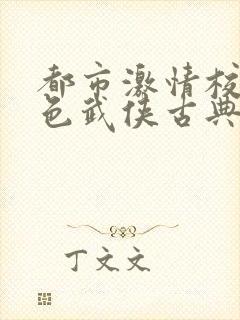 都市激情校
色武侠古典
丁文文